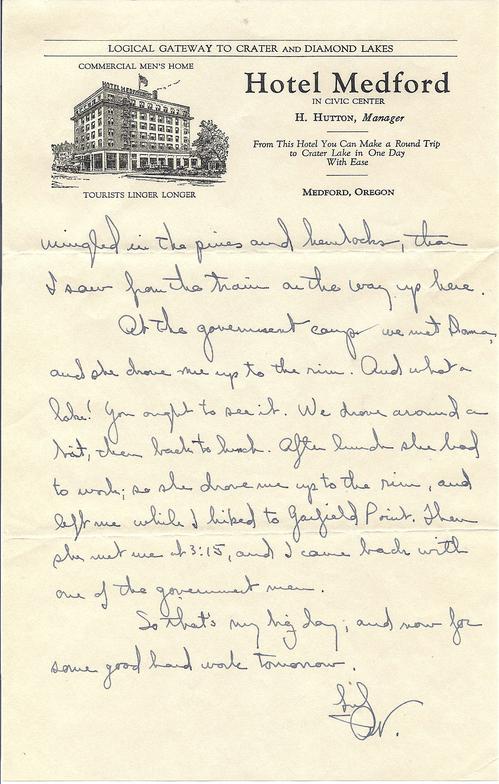 LOGICAL GATEWAY TO CRATER AND DIAMOND LAKES
COMMERCIAL MEN'S HOME
HOTEL MEDFORD
TOURISTS LINGER LONGER
Hotel Medford
IN CIVIC CENTER
H. HUTTON, Manager
From This Hotel You Can Make a Round Trip
to Crater Lake in One Day
With Ease
MEDFORD, OREGON
mingled in the pines and hemlocks, than
I saw from the train on the way up here.
At the government camp we met Dama,
and she drove me up to the rim. And what a
lake! You ought to see it. We drove around a
bit, then back to lunch. After lunch she had
to work; so she drove me up to the rim, and
left me while I hiked to Garfield Point. Then
she met me at 3:15, and I came back with
one of the government men.
So that's my big day; and now for
some good hard work tomorrow.